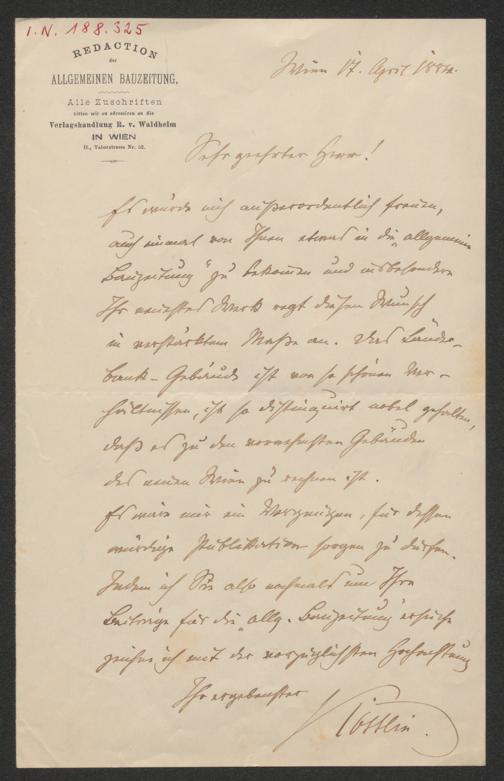 I.N. 188.325
REDACTION
der
ALLGEMEINEN BAUZEITUNG.
Alle Zuschriften
bitten wir zu adressiren an die
Verlagshandlung R. v. Waldheim
IN WIEN
II., Taborstrasse Nr. 52.
Wien 17. April 1884.
Sehr geehrter Herr!
Es würde mich außerordentlich freuen,
auch einmal von Ihnen etwas in die „allgemeine
Bauzeitung“ zu bekommen und insbesondere
Ihr neuestes Werk regt diesen Wunsch
in verstärktem Maße an. Das Länder-
bank-Gebäude ist von so schönen Ver-
hältnissen, ist so distinguirt nobel gehalten,
daß es zu den vornehmsten Gebäuden
des neuen Wien zu rechnen ist.
Es wäre mir ein Vergnügen, für dessen
würdige Publikation sorgen zu dürfen.
Indem ich Sie also nochmals um Ihre
Beiträge für die „allg. Bauzeitung“ ersuche
zeichne ich mit der vorzüglichsten Hochachtung
Ihr ergebenster
Köstlin.